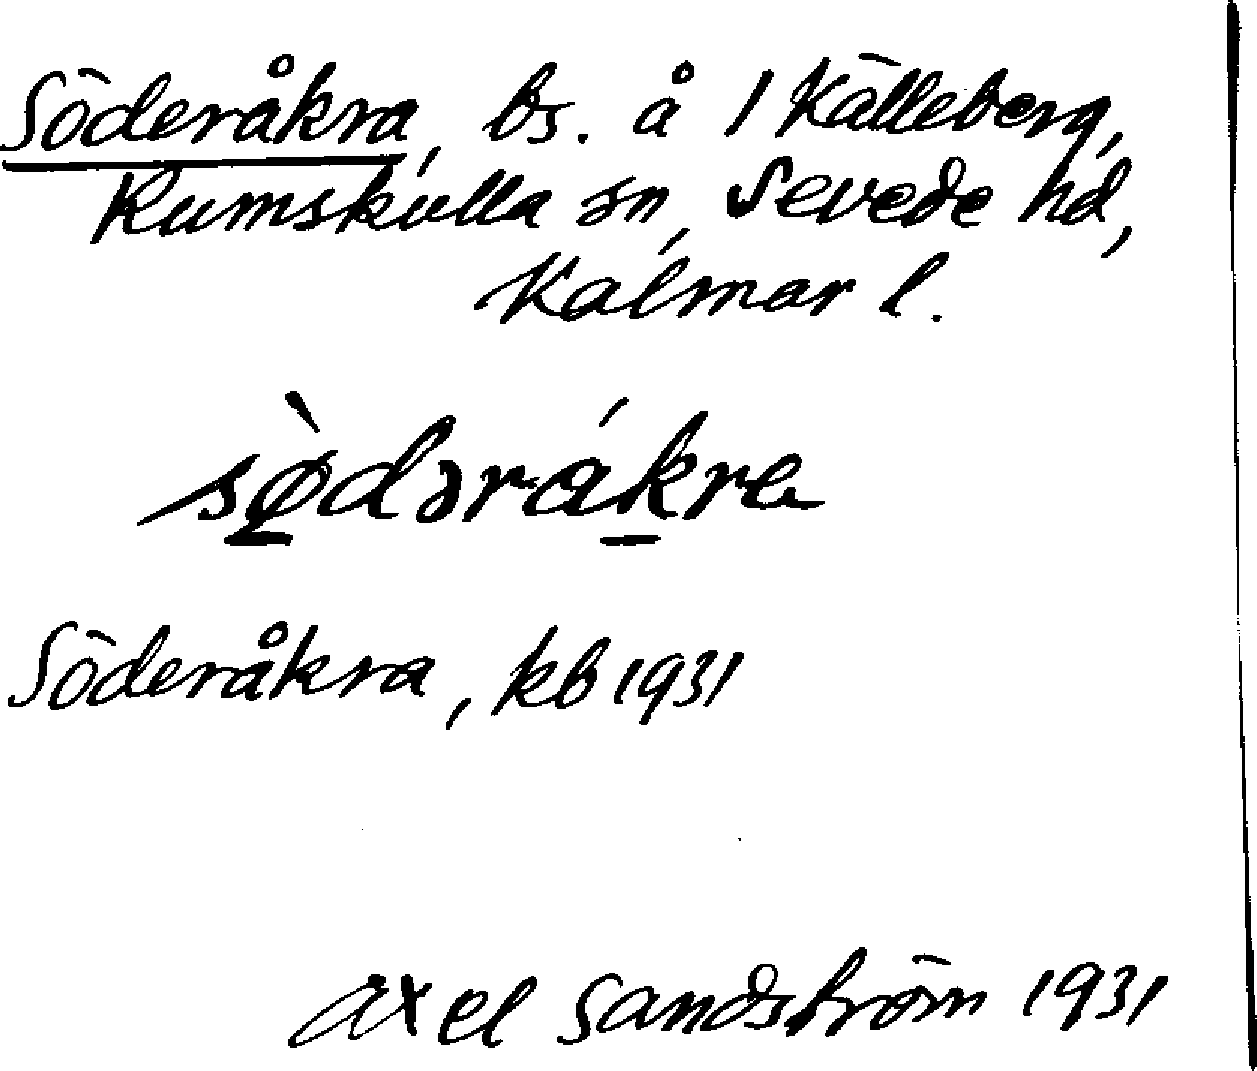 Söderåkra, bs. å 1 Källeberg,
Rumskulla sn, Sevede hd,
Kalmar l.
sø̀dərákra
Söderåkra, kb 1931
Axel Sandström 1931